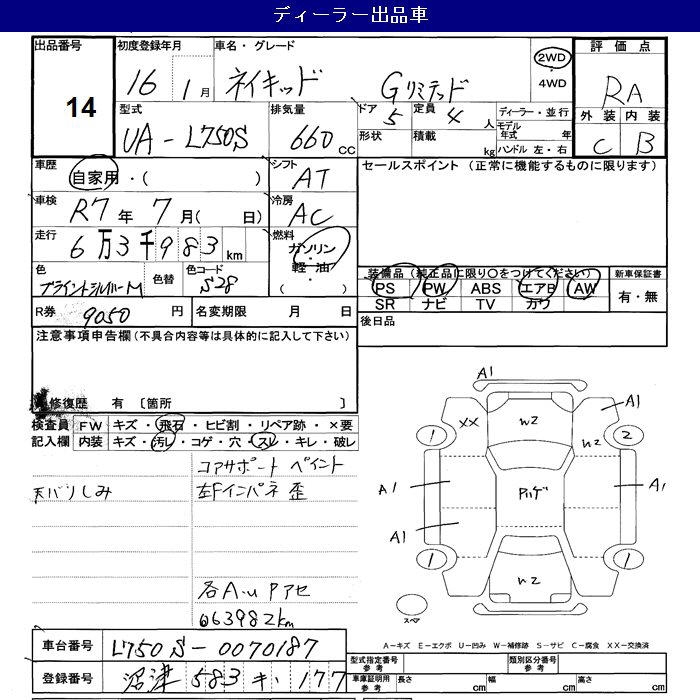 ディーラー出品車
出品番号
14
初度登録年月
16 1月
車名・グレード
ネイキッド Gリミテッド
2WD
4WD
評価点
RA
外装 内装
C B
型式
UA-L750S
排気量
660 CC
ドア 5
定員 4 人
形状
積載 kg
ディーラー・並行
モデル年式 年
ハンドル 左・右
車歴
自家用・( )
シフト
AT
セールスポイント (正常に機能するものに限ります)
車検
R7年 7月( 日)
冷房
AC
走行
6万3千983km
燃料
ガソリン・
軽油・
( )
色
ブライトシルバーM
色替
色コード
S28
装備品(純正品に限り○をつけてください)
新車保証書
PS PW ABS エアB AW
SR ナビ TV カワ
有・無
R券 9050 円
名変期限 月 日
後日品
注意事項申告欄(不具合内容等は具体的に記入して下さい)
修復歴 有 〔箇所 〕
検査員
記入欄
FW キズ・飛石・ヒビ割・リペア跡・×要
内装 キズ・汚レ・コゲ・穴・スレ・キレ・破レ
コアサポート ペイント
天バリしみ
左Fインパネ 歪
各A.u Pアセ
063982km
A1
XX
W2
A1
W2
1
2
A1
A1
A1
1
1
W2
スペア
A-キズ E-エクボ U-凹み W-補修跡 S-サビ C-腐食 XX-交換済
車台番号
L750S-0070187
登録番号
沼津 583 キ 177
型式指定番号
参考
類別区分番号
参考
車庫証明用
参考
長さ cm
幅 cm
高さ cm